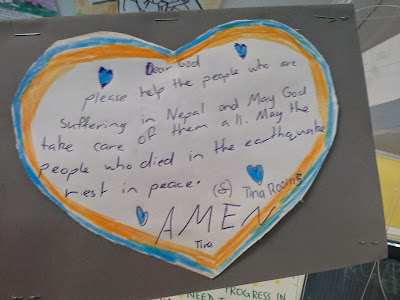 Dear God
please help the people who are
suffering in Nepal and May God
take care of them all. May the
people who died in the earthquake
rest in peace. (&) Tina Room 5
AMEN
Tina
PROGRESS IN
NEED